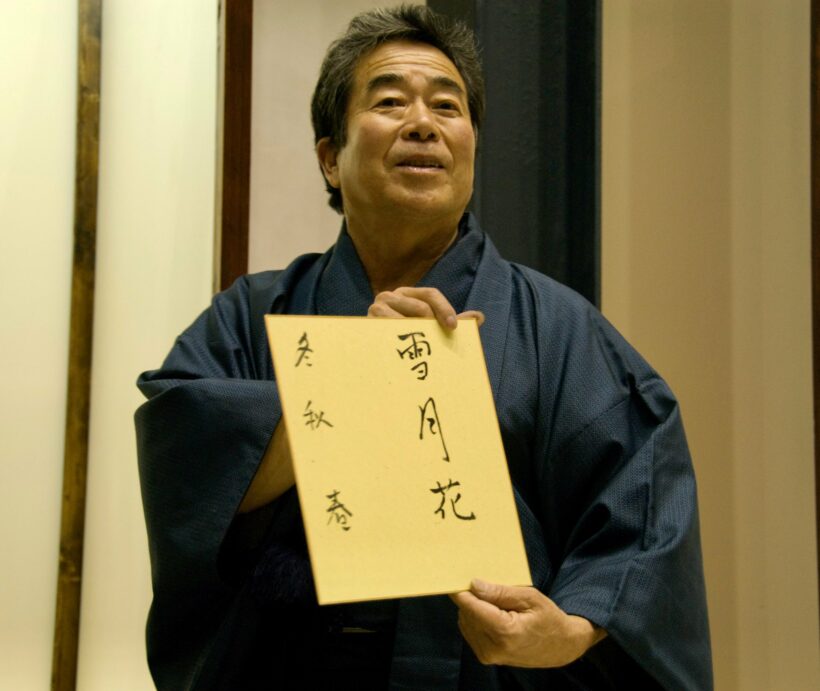 雪月花
冬秋春